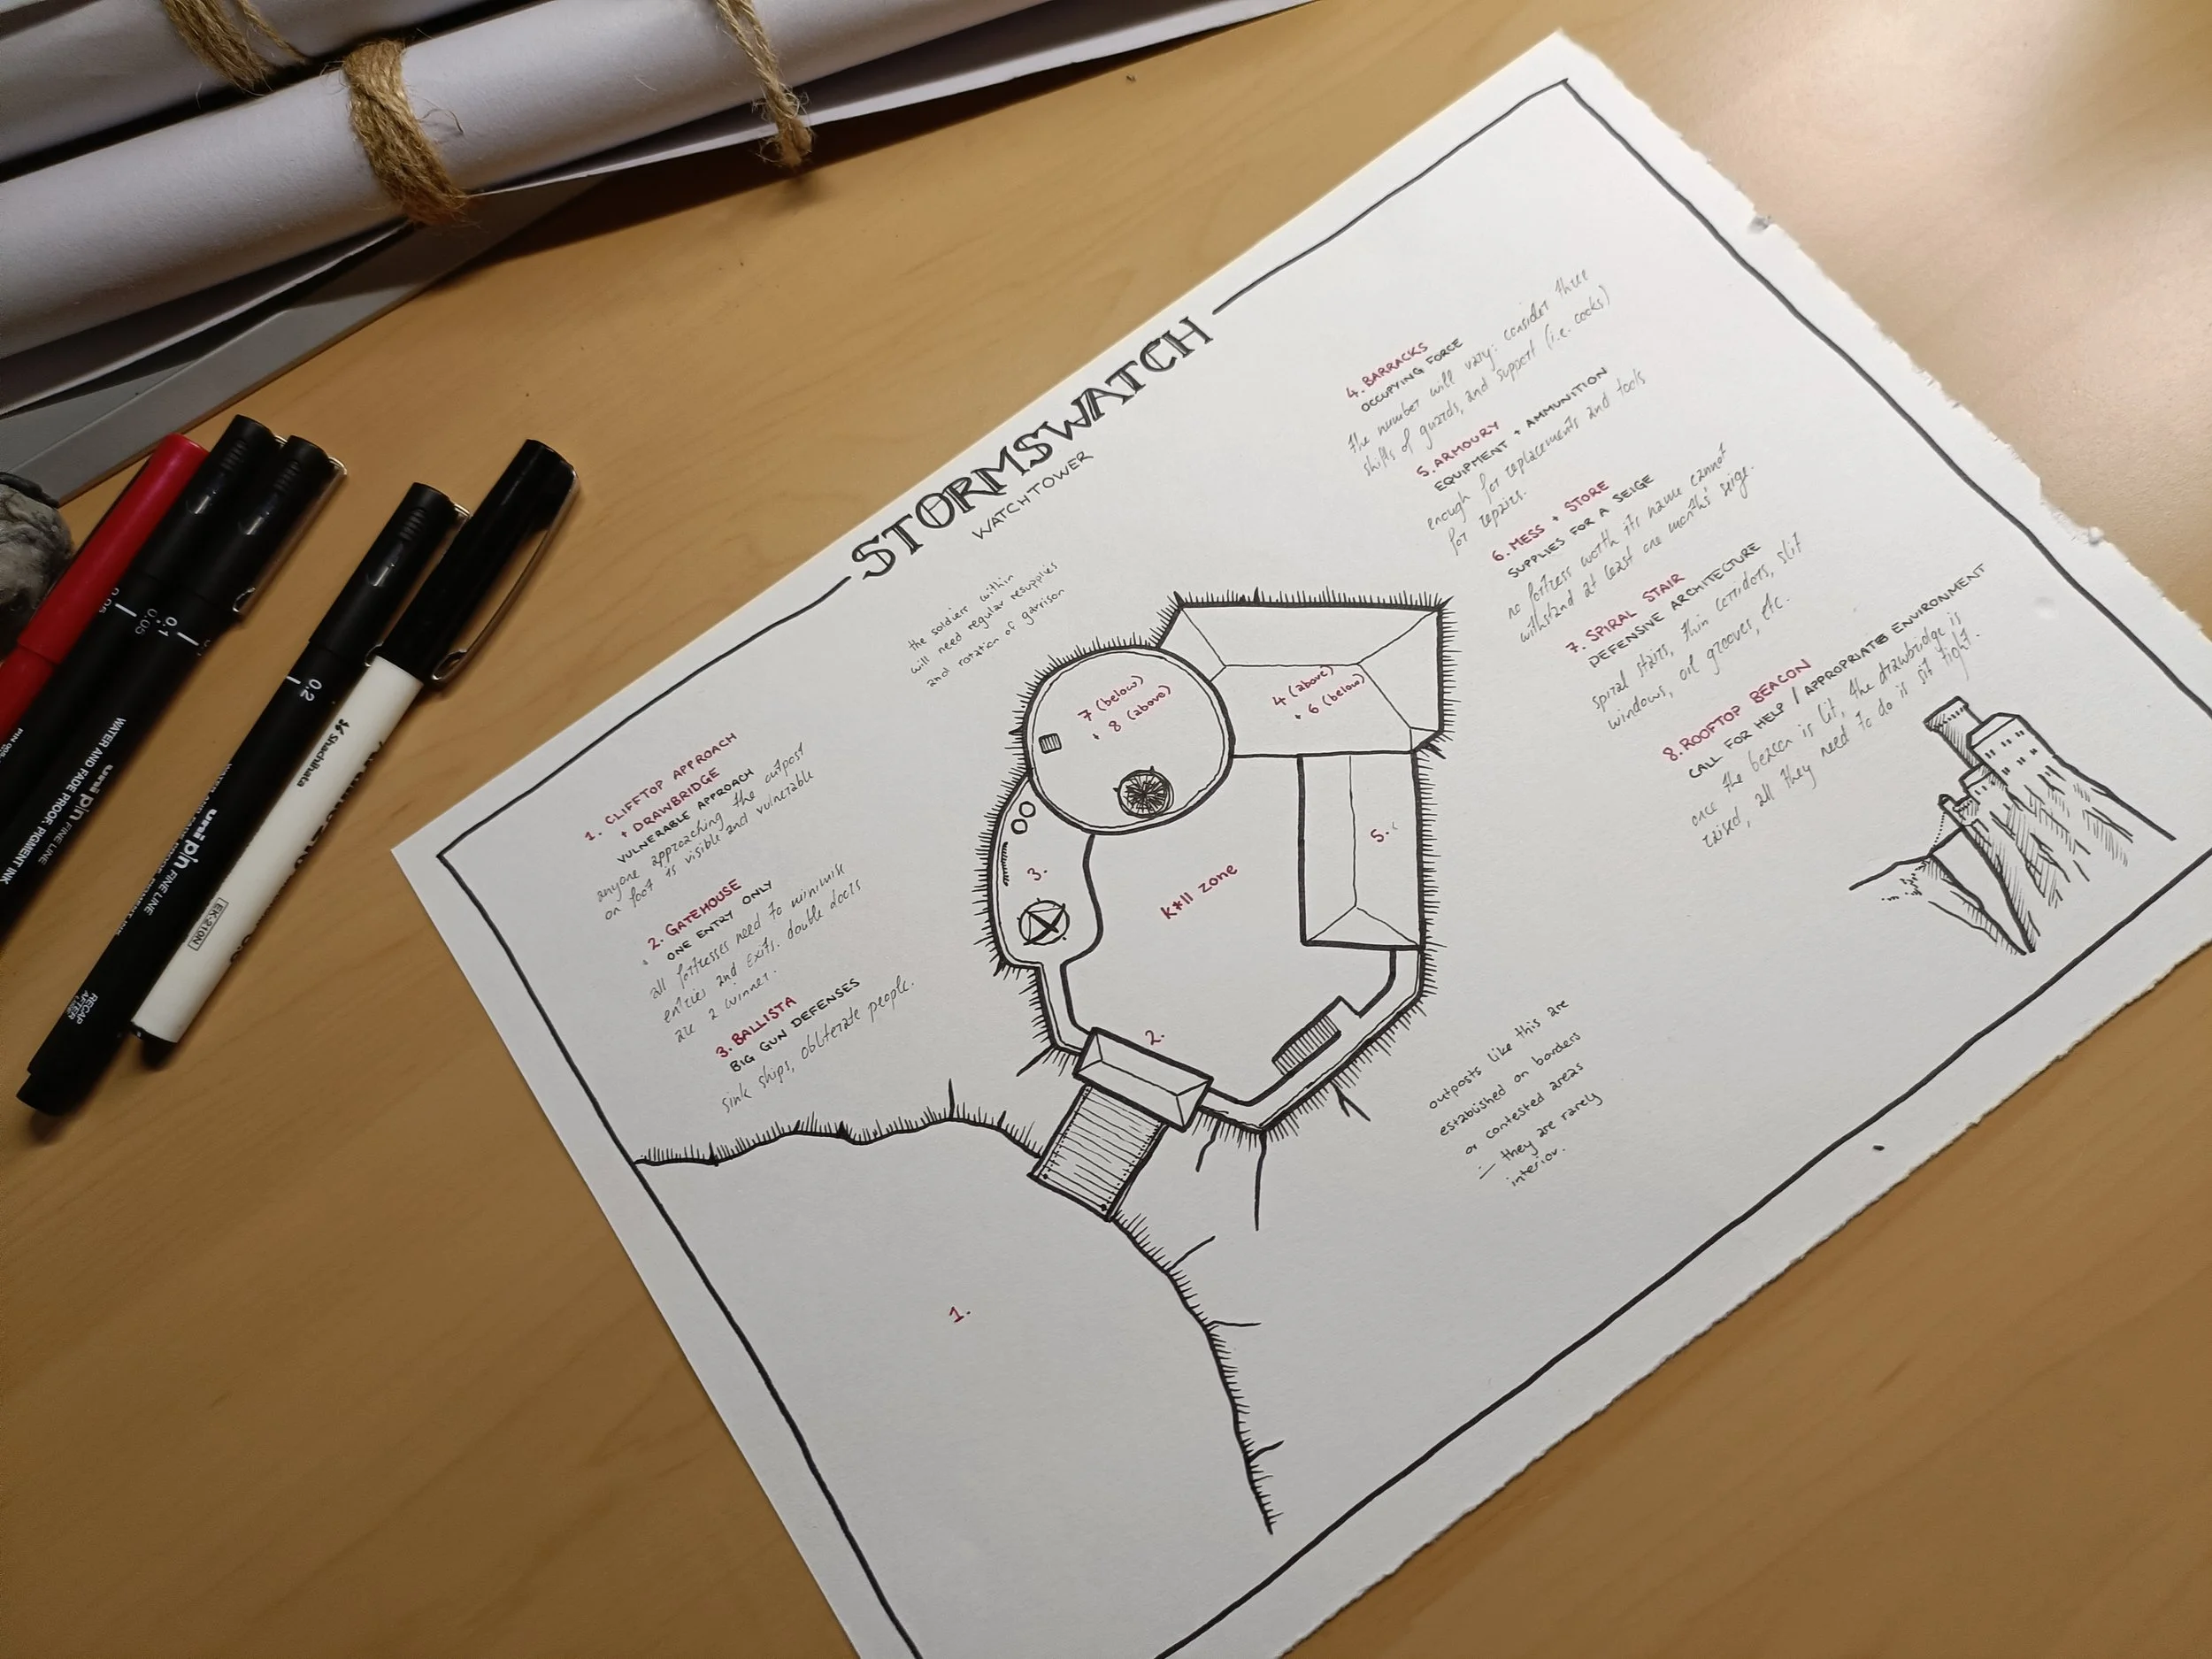 STORMSWATCH
WATCHTOWER
the soldiers within
will need regular resupplies
and rotation of garrison
1. CLIFFTOP APPROACH
+ DRAWBRIDGE
VULNERABLE APPROACH
anyone approaching the outpost
on foot is visible and vulnerable
2. GATEHOUSE
ONE ENTRY ONLY
all fortresses need to minimise
entries and exits. double doors
are a winner.
3. BALLISTA
BIG GUN DEFENSES
sink ships, obliterate people.
4. BARRACKS
OCCUPYING FORCE
the number will vary: consider three
shifts of guards, and support (i.e. cooks)
5. ARMOURY
EQUIPMENT + AMMUNITION
enough for replacements and tools
for repairs.
6. MESS + STORE
SUPPLIES FOR A SEIGE
no fortress worth its name cannot
withstand at least one month's seige.
7. SPIRAL STAIR
DEFENSIVE ARCHITECTURE
spiral stairs, thin corridors, slit
windows, oil grooves, etc.
8. ROOFTOP BEACON
CALL FOR HELP / APPROPRIATE ENVIRONMENT
once the beacon is lit, the drawbridge is
raised, all they need to do is sit tight.
7 (below)
+ 8 (above)
4 (above)
+ 6 (below)
3.
5.
k*ll zone
2.
1.
outposts like this are
established on borders
or contested areas
– they are rarely
interior.
0.05
0.05
0.1
0.2
PIN
WATER AND FADE PROOF, PIGMENT INK
uni pin FINE LINE
uni pin FINE LINE
RECAP
AFTER
USE
Shachihata
EK-210N